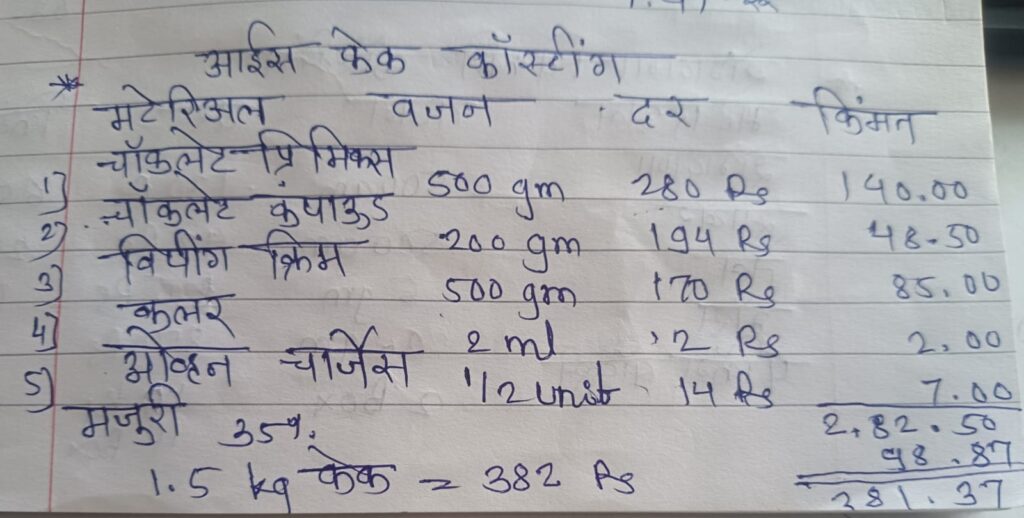 आईस केक कॉस्टींग
* मटेरिअल वजन दर किंमत
1) चॉकलेट प्रिमिक्स 500 gm 280 Rs 140.00
2) चॉकलेट कंपाऊंड 200 gm 194 Rs 48.50
3) विपींग क्रिम 500 gm 170 Rs 85.00
4) कुलर 2 ml 2 Rs 2.00
5) ओव्हन चार्जेस 1/2 unit 14 Rs 7.00
2,82.50
मजुरी 35%. 98.87
1.5 kg केक = 382 Rs 381.37